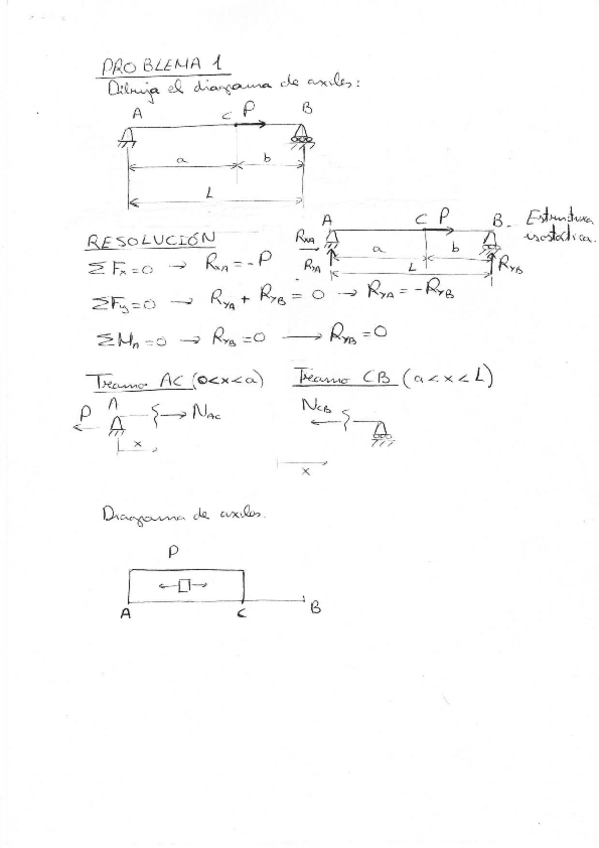 PROBLEMA 1
Dibuja el diagrama de axiles:
A C P B
a b
L
A C P B. Estructura
isostática.
RESOLUCIÓN
R_XA a b
R_YA L R_YB
ΣF_x=0 → R_XA = -P
ΣF_y=0 → R_YA + R_YB = 0 → R_YA = -R_YB
ΣM_A=0 → R_YB=0 → R_YB=0
Tramo AC (0<x<a) Tramo CB (a<x<L)
P A N_AC N_CB
x
x
Diagrama de axiles.
P
A C B